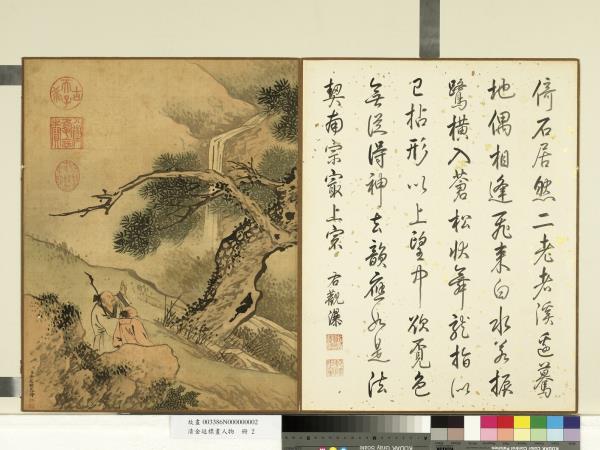 倚石居然二老者溪邊驀
地偶相逢飛來白水若振
鷺橫入蒼松狀舞龍指似
已拈形以上望中欲覓色
無從得神去韻應如是法
契南宗最上宗
右觀瀑
古希天子
故畫 003386N000000002
清金廷標畫人物 冊 2